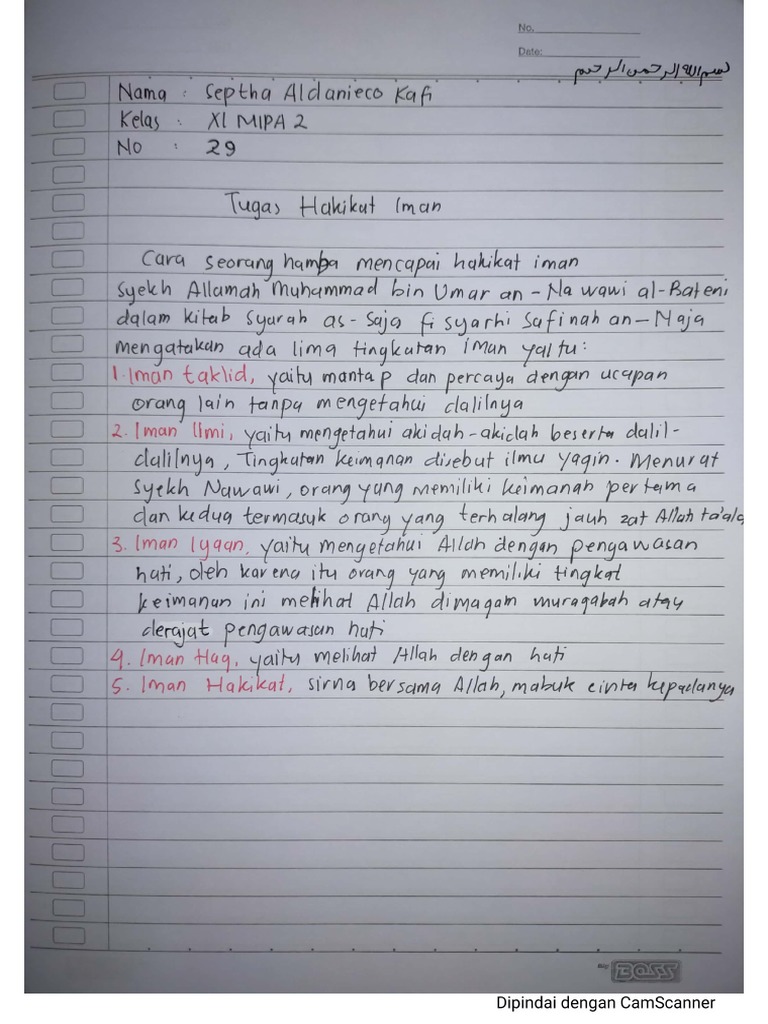 No.
Date:
بسم الله الرحمن الرحيم
Nama : Septha Aldanieco Kafi
Kelas : XI MIPA 2
No : 29
Tugas Hakikat Iman
Cara seorang hamba mencapai hakikat iman
Syekh Allamah Muhammad bin Umar an-Nawawi al-Bateni
dalam kitab Syarah as-Saja fi syarhi Safinah an-Naja
mengatakan ada lima tingkatan iman yaitu:
1. Iman taklid, yaitu mantap dan percaya dengan ucapan
orang lain tanpa mengetahui dalilnya
2. Iman Ilmi, yaitu mengetahui akidah-akidah beserta dalil-
dalilnya, Tingkatan keimanan disebut ilmu yaqin. Menurat
Syekh Nawawi, orang yang memiliki keimanan pertama
dan kedua termasuk orang yang terhalang jauh zat Allah ta'ala
3. Iman Iyaan, yaitu mengetahui Allah dengan pengawasan
hati, oleh karena itu orang yang memiliki tingkat
keimanan ini melihat Allah dimaqam muraqabah atau
derajat pengawasan hati
4. Iman Haq, yaitu melihat Allah dengan hati
5. Iman Hakikat, sirna bersama Allah, mabuk cinta kepadanya
my BOSS
Dipindai dengan CamScanner